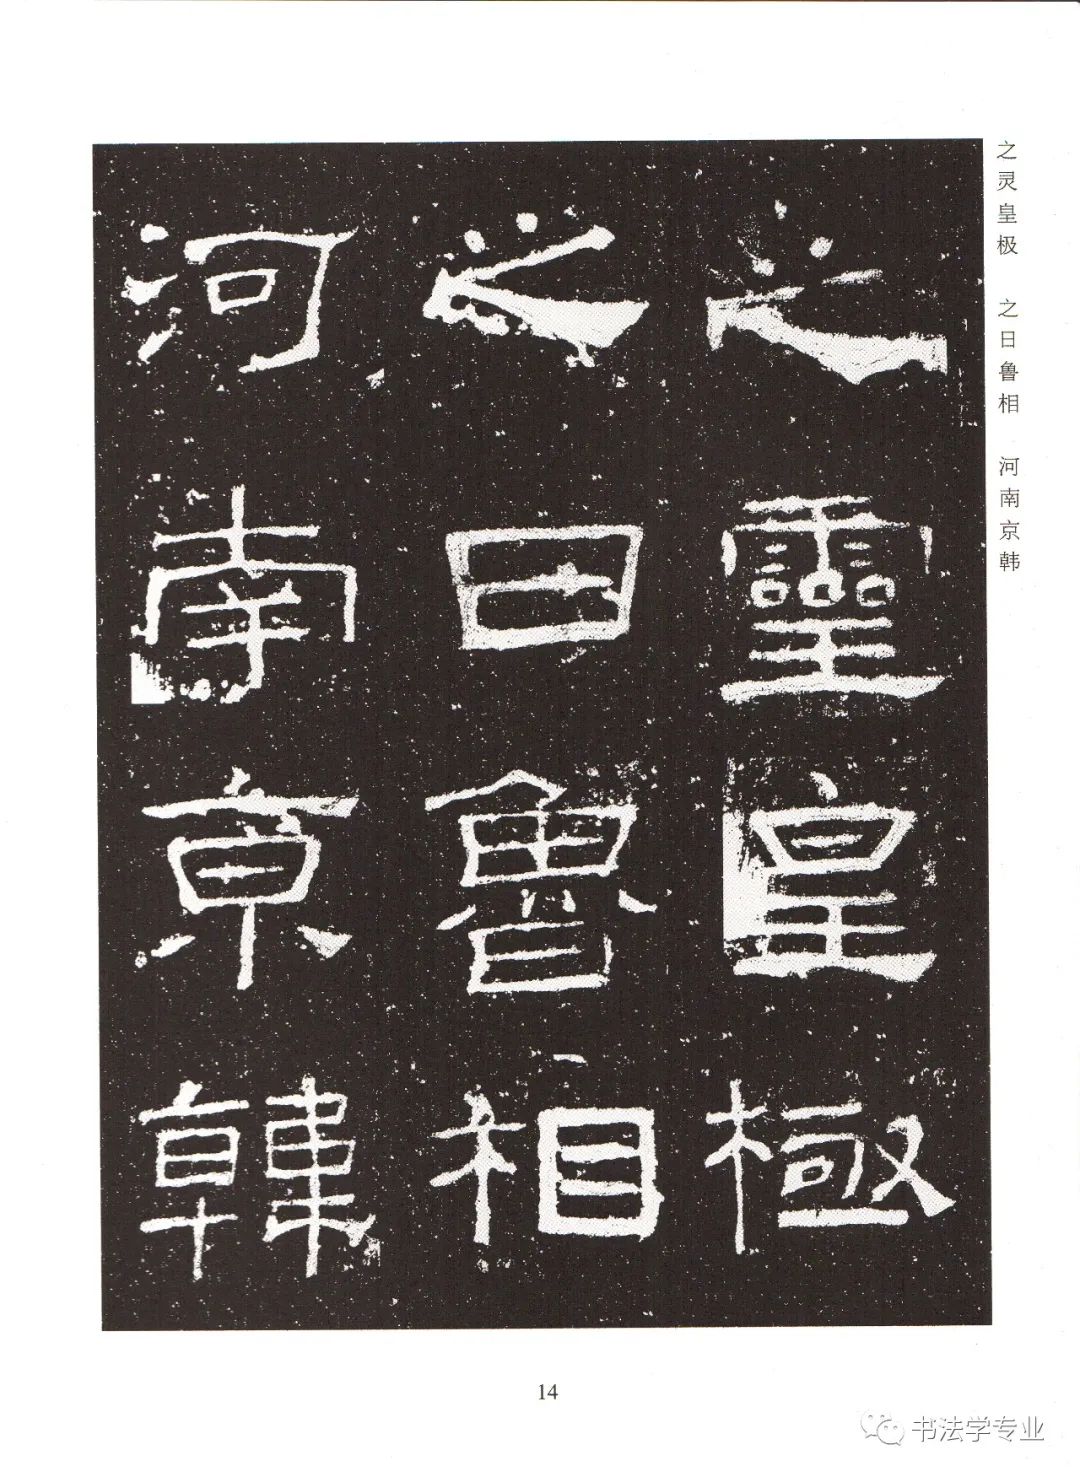 之靈皇極
之日魯相
河南京韓
之灵皇极 之日鲁相 河南京韩
14
书法学专业